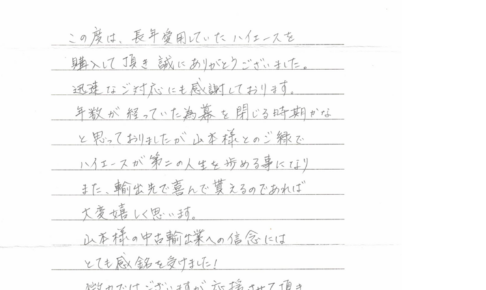 この度は、長年愛用していたハイエースを
購入して頂き誠にありがとうございました。
迅速なご対応にも感謝しております。
年数が経っていた為幕を閉じる時期かな
と思っておりましたが山本様とのご縁で
ハイエースが第二の人生を歩める事になり
また、輸出先で喜んで貰えるのであれば
大変嬉しく思います。
山本様の中古輸出業への信念には
とても感銘を受けました!
微力ではございますが応援させて頂き